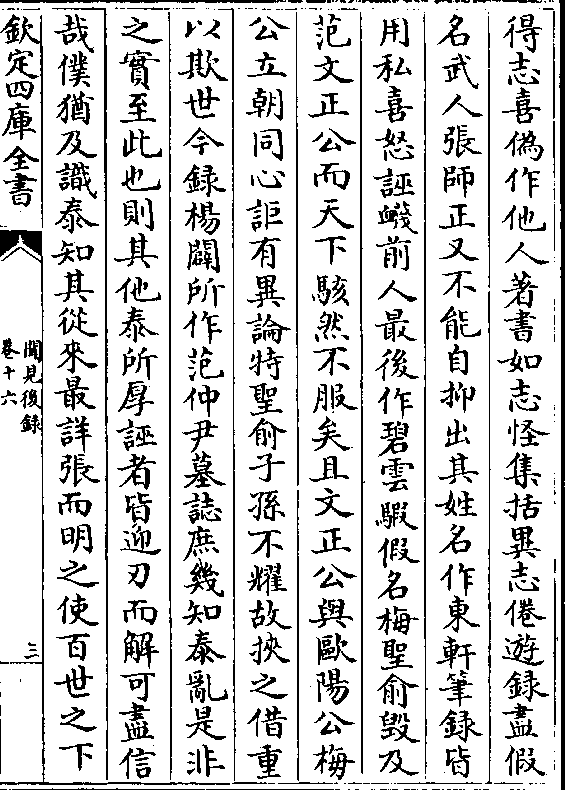 得志喜僞作他人著書如志怪集括異志倦遊録盡假
名武人張師正又不能自抑出其姓名作東軒筆録皆
用私喜怒誣衊前人最後作碧雲騢假名梅聖俞毁及
范文正公而天下駭然不服矣且文正公與歐陽公梅
公立朝同心詎有異論特聖俞子孫不耀故挾之借重
以欺世今録楊闢所作范仲尹墓誌庶幾知泰亂是非
之實至此也則其他泰所厚誣者皆迎刃而解可盡信
哉僕猶及識泰知其從來最詳張而明之使百世之下
欽定四庫全書
聞見後録
卷十六
三